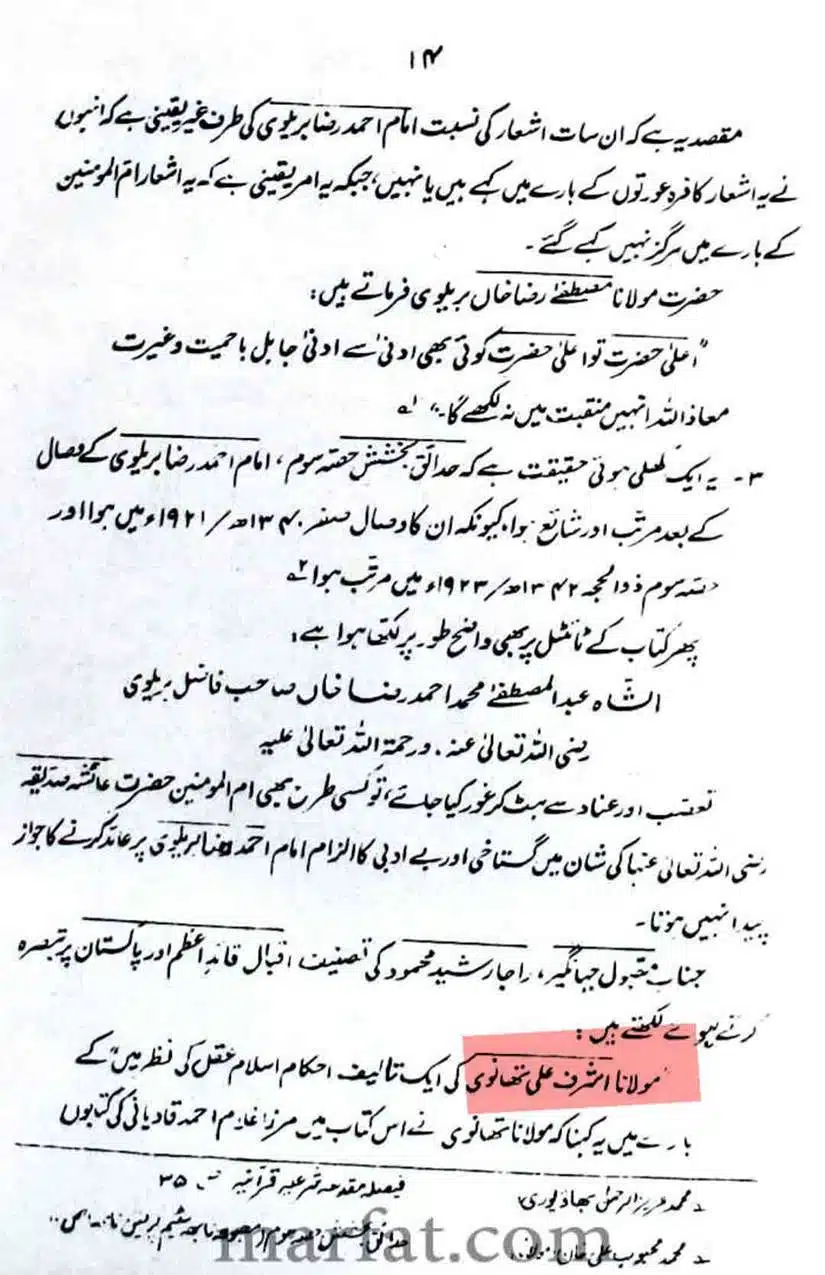 ۱۴
مقصد یہ ہے کہ ان سات اشعار کی نسبت امام احمد رضا بریلوی کی طرف غیر یقینی ہے کہ انہوں
نے یہ اشعار کافرہ عورتوں کے بارے میں کہے ہیں یا نہیں، جبکہ یہ امر یقینی ہے کہ یہ اشعار ام المومنین
کے بارے میں ہرگز نہیں کہے گئے۔
حضرت مولانا مصطفےٰ رضا خاں بریلوی فرماتے ہیں:
"اعلیٰ حضرت تو اعلیٰ حضرت کوئی بھی ادنیٰ سے ادنیٰ جاہل با حمیت و غیرت
معاذ اللہ انہیں منقبت میں نہ لکھے گا۔" ۱ھ
۳- یہ ایک کھلی ہوئی حقیقت ہے کہ حدائق بخشش حصہ سوم، امام احمد رضا بریلوی کے وصال
کے بعد مرتب اور شائع ہوا، کیونکہ ان کا وصال صفر ۱۳۴۰ھ/۱۹۲۱ء میں ہوا اور
حصہ سوم ذوالحجہ ۱۳۴۲ھ/۱۹۲۳ء میں مرتب ہوا ۲ھ
پھر کتاب کے ٹائٹل پر بھی واضح طور پر لکھا ہوا ہے:
الشاہ عبد المصطفےٰ محمد احمد رضا خاں صاحب فاضل بریلوی
رضی اللہ تعالیٰ عنہ۔ ورحمۃ اللہ تعالیٰ علیہ
تعصب اور عناد سے ہٹ کر غور کیا جائے، تو کسی طرح بھی ام المومنین حضرت عائشہ صدیقہ
رضی اللہ تعالیٰ عنہا کی شان میں گستاخی اور بے ادبی کا الزام امام احمد رضا بریلوی پر عائد کرنے کا جواز
پیدا نہیں ہوتا۔
جناب مقبول جہانگیر، راجا رشید محمود کی تصنیف اقبال قائد اعظم اور پاکستان پر تبصرہ
کرتے ہوئے لکھتے ہیں:
"مولانا اشرف علی تھانوی کی ایک تالیف احکام اسلام عقل کی نظر میں" کے
بارے میں یہ کہنا کہ مولانا تھانوی نے اس کتاب میں مرزا غلام احمد قادیانی کی کتابوں
محمد عزیز الرحمٰن بہاؤلپوری، فیصلہ مقدمہ شرعیہ قرآنیہ ص ۳۵
محمد محبوب علی خان، مولانا: حدائق بخشش حصہ سوم
marfat.com